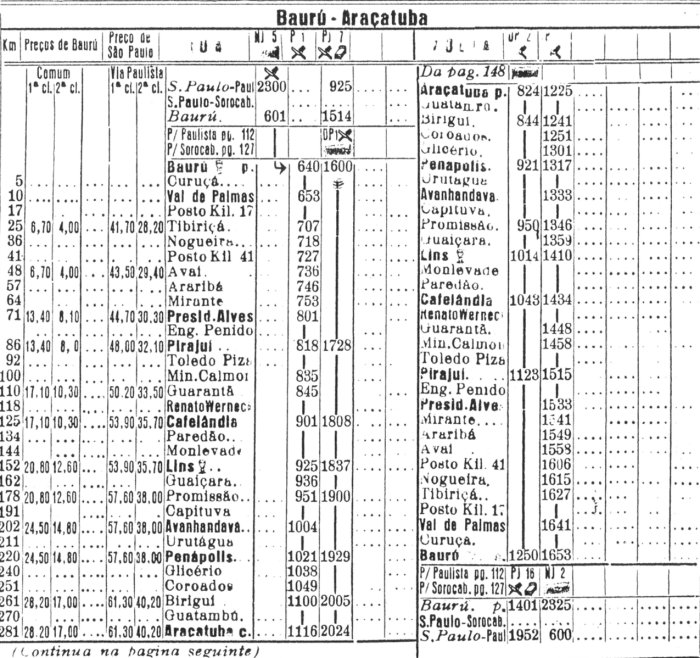 Baurú - Araçatuba
Km Preços de Baurú Preço de São Paulo IDA NJ 5 P 1 PJ 7
Comum Via Paulista
1ª cl. 2ª cl. 1ª cl. 2ª cl.
S. Paulo-Paul 2300 ... 925
S. Paulo-Sorocab.
Baurú. 601 ... 1514
P/ Paulista pg. 112
P/ Sorocab. pg. 127
Baurú p. 640 1600
5 Curuçá....
10 Val de Palmas 653
17 Posto Kil. 17
25 6,70 4,00 41,70 28,20 Tibiriçá. 707
36 Nogueira... 718
41 Posto Kil 41 727
48 6,70 4,00 43,50 29,40 Avaí. 736
57 Araribá 746
64 Mirante 753
71 13,40 8,10 44,70 30,30 Presid. Alves 801
Eng. Penido
86 13,40 48,00 32,10 Pirajuí .. 818 1728
92 Toledo Piza
100 Min. Calmon 835
110 17,10 10,30 50,20 33,50 Guarantã 845
118 Renato Wernec
125 17,10 10,30 53,90 35,70 Cafelândia 901 1808
134 Paredão...
144 Monlevade
152 20,80 12,60 53,90 35,70 Lins .. 925 1837
162 Guaiçara. 936
178 20,80 12,60 57,60 38,00 Promissão.. 951 1900
191 Capituva
202 24,50 14,80 57,60 38,00 Avanhandava.. 1004
211 Urutágua
220 24,50 14,80 57,60 38,00 Penápolis.. 1021 1929
240 Glicério 1038
251 Coroados 1049
261 28,20 17,00 61,30 40,20 Birigui 1100 2005
270 Guatambú.
281 28,20 17,00 61,30 40,20 Araçatuba c. 1116 2024
(Continua na pagina seguinte)
VOLTA
Da pag. 148
Araçatuba p. 824 1225
Guatambú.
Birigui. 844 1241
Coroados. 1251
Glicério. 1301
Penapolis. 921 1317
Urutagua
Avanhandava. 1333
Capituva.
Promissão. 950 1346
Guaiçara. 1359
Lins 1014 1410
Monlevade
Paredão.
Cafelândia 1043 1434
Renato Wernec
Guarantã. 1448
Min. Calmon 1458
Toledo Piza
Pirajuí. 1123 1515
Eng. Penido
Presid. Alve 1533
Mirante.... 1541
Araribá 1549
Avaí 1558
Posto Kil. 41 1606
Nogueira. 1615
Tibiriçá.. 1627
Posto Kil. 17
Val de Palmas 1641
Curuça.
Baurú 1250 1653
P/ Paulista pg. 112 PJ 16 NJ 2
P/ Sorocab. pg. 127
Baurú. p. 1401 2325
S. Paulo-Sorocab.
S. Paulo-Paul 1952 600